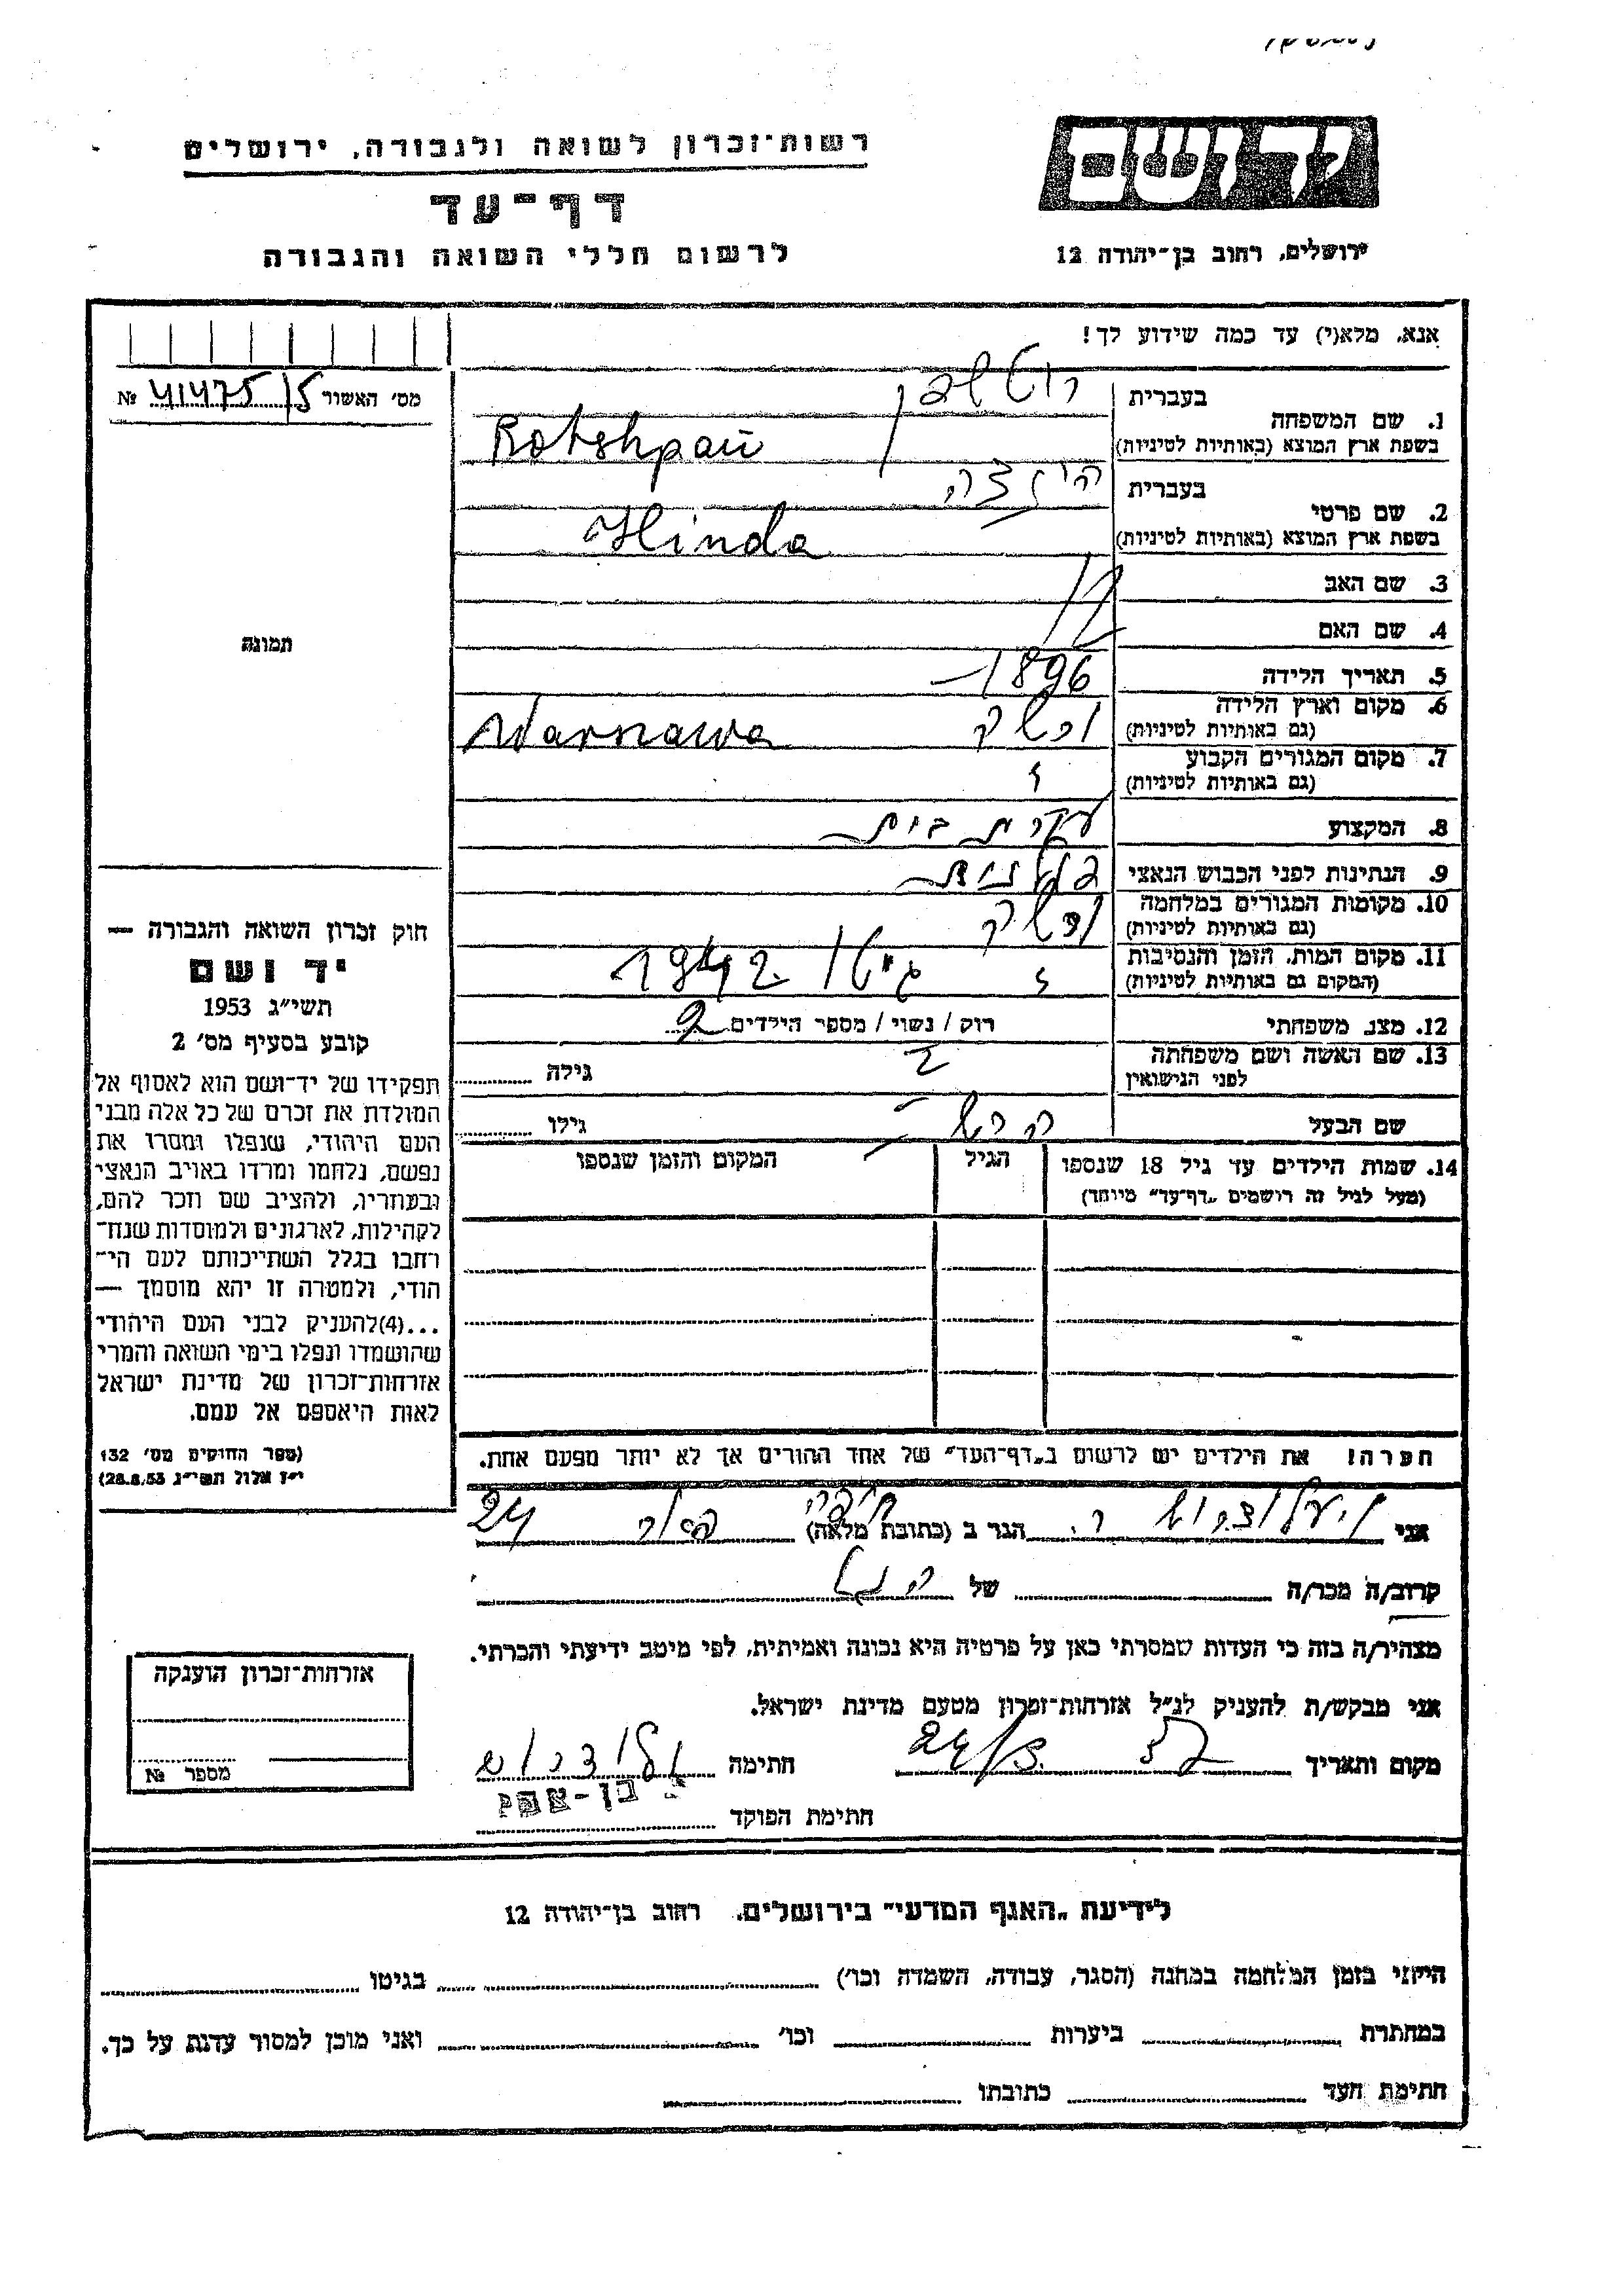 ידושם
ירושלים, רחוב בן־יהודה 12
רשות־זכרון לשואה ולגבורה, ירושלים
דף־עד
לרשום חללי השואה והגבורה
אנא, מלא(י) עד כמה שידוע לך!
מס׳ האשור 41475/5 №
1. שם המשפחה
בעברית רוטשפן
בשפת ארץ המוצא (באותיות לטיניות) Rotshpan
2. שם פרטי
בעברית הינדה
בשפת ארץ המוצא (באותיות לטיניות) Hinda
3. שם האב
4. שם האם
5. תאריך הלידה 1896
6. מקום וארץ הלידה
(גם באותיות לטיניות) ורשה Warszawa
7. מקום המגורים הקבוע
(גם באותיות לטיניות)
8. המקצוע עקרת בית
9. הנתינות לפני הכבוש הנאצי פולנית
10. מקומות המגורים במלחמה
(גם באותיות לטיניות) ורשה
11. מקום המות, הזמן והנסיבות
(המקום גם באותיות לטיניות) גיטו 1942
12. מצב משפחתי רוק / נשוי / מספר הילדים 2
13. שם האשה ושם משפחתה
לפני הנישואין גילה
שם הבעל הרש גילו
14. שמות הילדים עד גיל 18 שנספו
(מעל לגיל זה רושמים „דף־עד״ מיוחד)
הגיל
המקום והזמן שנספו
הערה! את הילדים יש לרשום ב„דף־העד״ של אחד ההורים אך לא יותר מפעם אחת.
תמונה
חוק זכרון השואה והגבורה —
יד ושם
תשי״ג 1953
קובע בסעיף מס׳ 2
תפקידו של יד־ושם הוא לאסוף אל
המולדת את זכרם של כל אלה מבני
העם היהודי, שנפלו ומסרו את
נפשם, נלחמו ומרדו באויב הנאצי
ובעוזריו, ולהציב שם וזכר להם,
לקהילות, לארגונים ולמוסדות שנח־
רחבו בגלל השתייכותם לעם הי־
הודי, ולמטרה זו יהא מוסמך —
...(4)להעניק לבני העם היהודי
שהושמדו ונפלו בימי השואה והמרי
אזרחות־זכרון של מדינת ישראל
לאות היאספם אל עמם.
(ספר החוקים מס׳ 132
י״ז אלול תשי״ג 28.8.53)
אני הגר ב (כתובת מלאה) חיפה 24
קרוב/ה מכר/ה של
מצהיר/ה בזה כי העדות שמסרתי כאן על פרטיה היא נכונה ואמיתית, לפי מיטב ידיעתי והכרתי.
אני מבקש/ת להעניק לנ״ל אזרחות־זכרון מטעם מדינת ישראל.
מקום ותאריך חתימה
חתימת הפוקד בן-אבי
אזרחות־זכרון הוענקה
מספר №
לידיעת „האגף המדעי״ בירושלים, רחוב בן־יהודה 12
הייתי בזמן המלחמה במחנה (הסגר, עבודה, השמדה וכו׳) בגיטו
במחתרת ביערות וכו׳ ואני מוכן למסור עדות על כך.
חתימת העד כתובתו